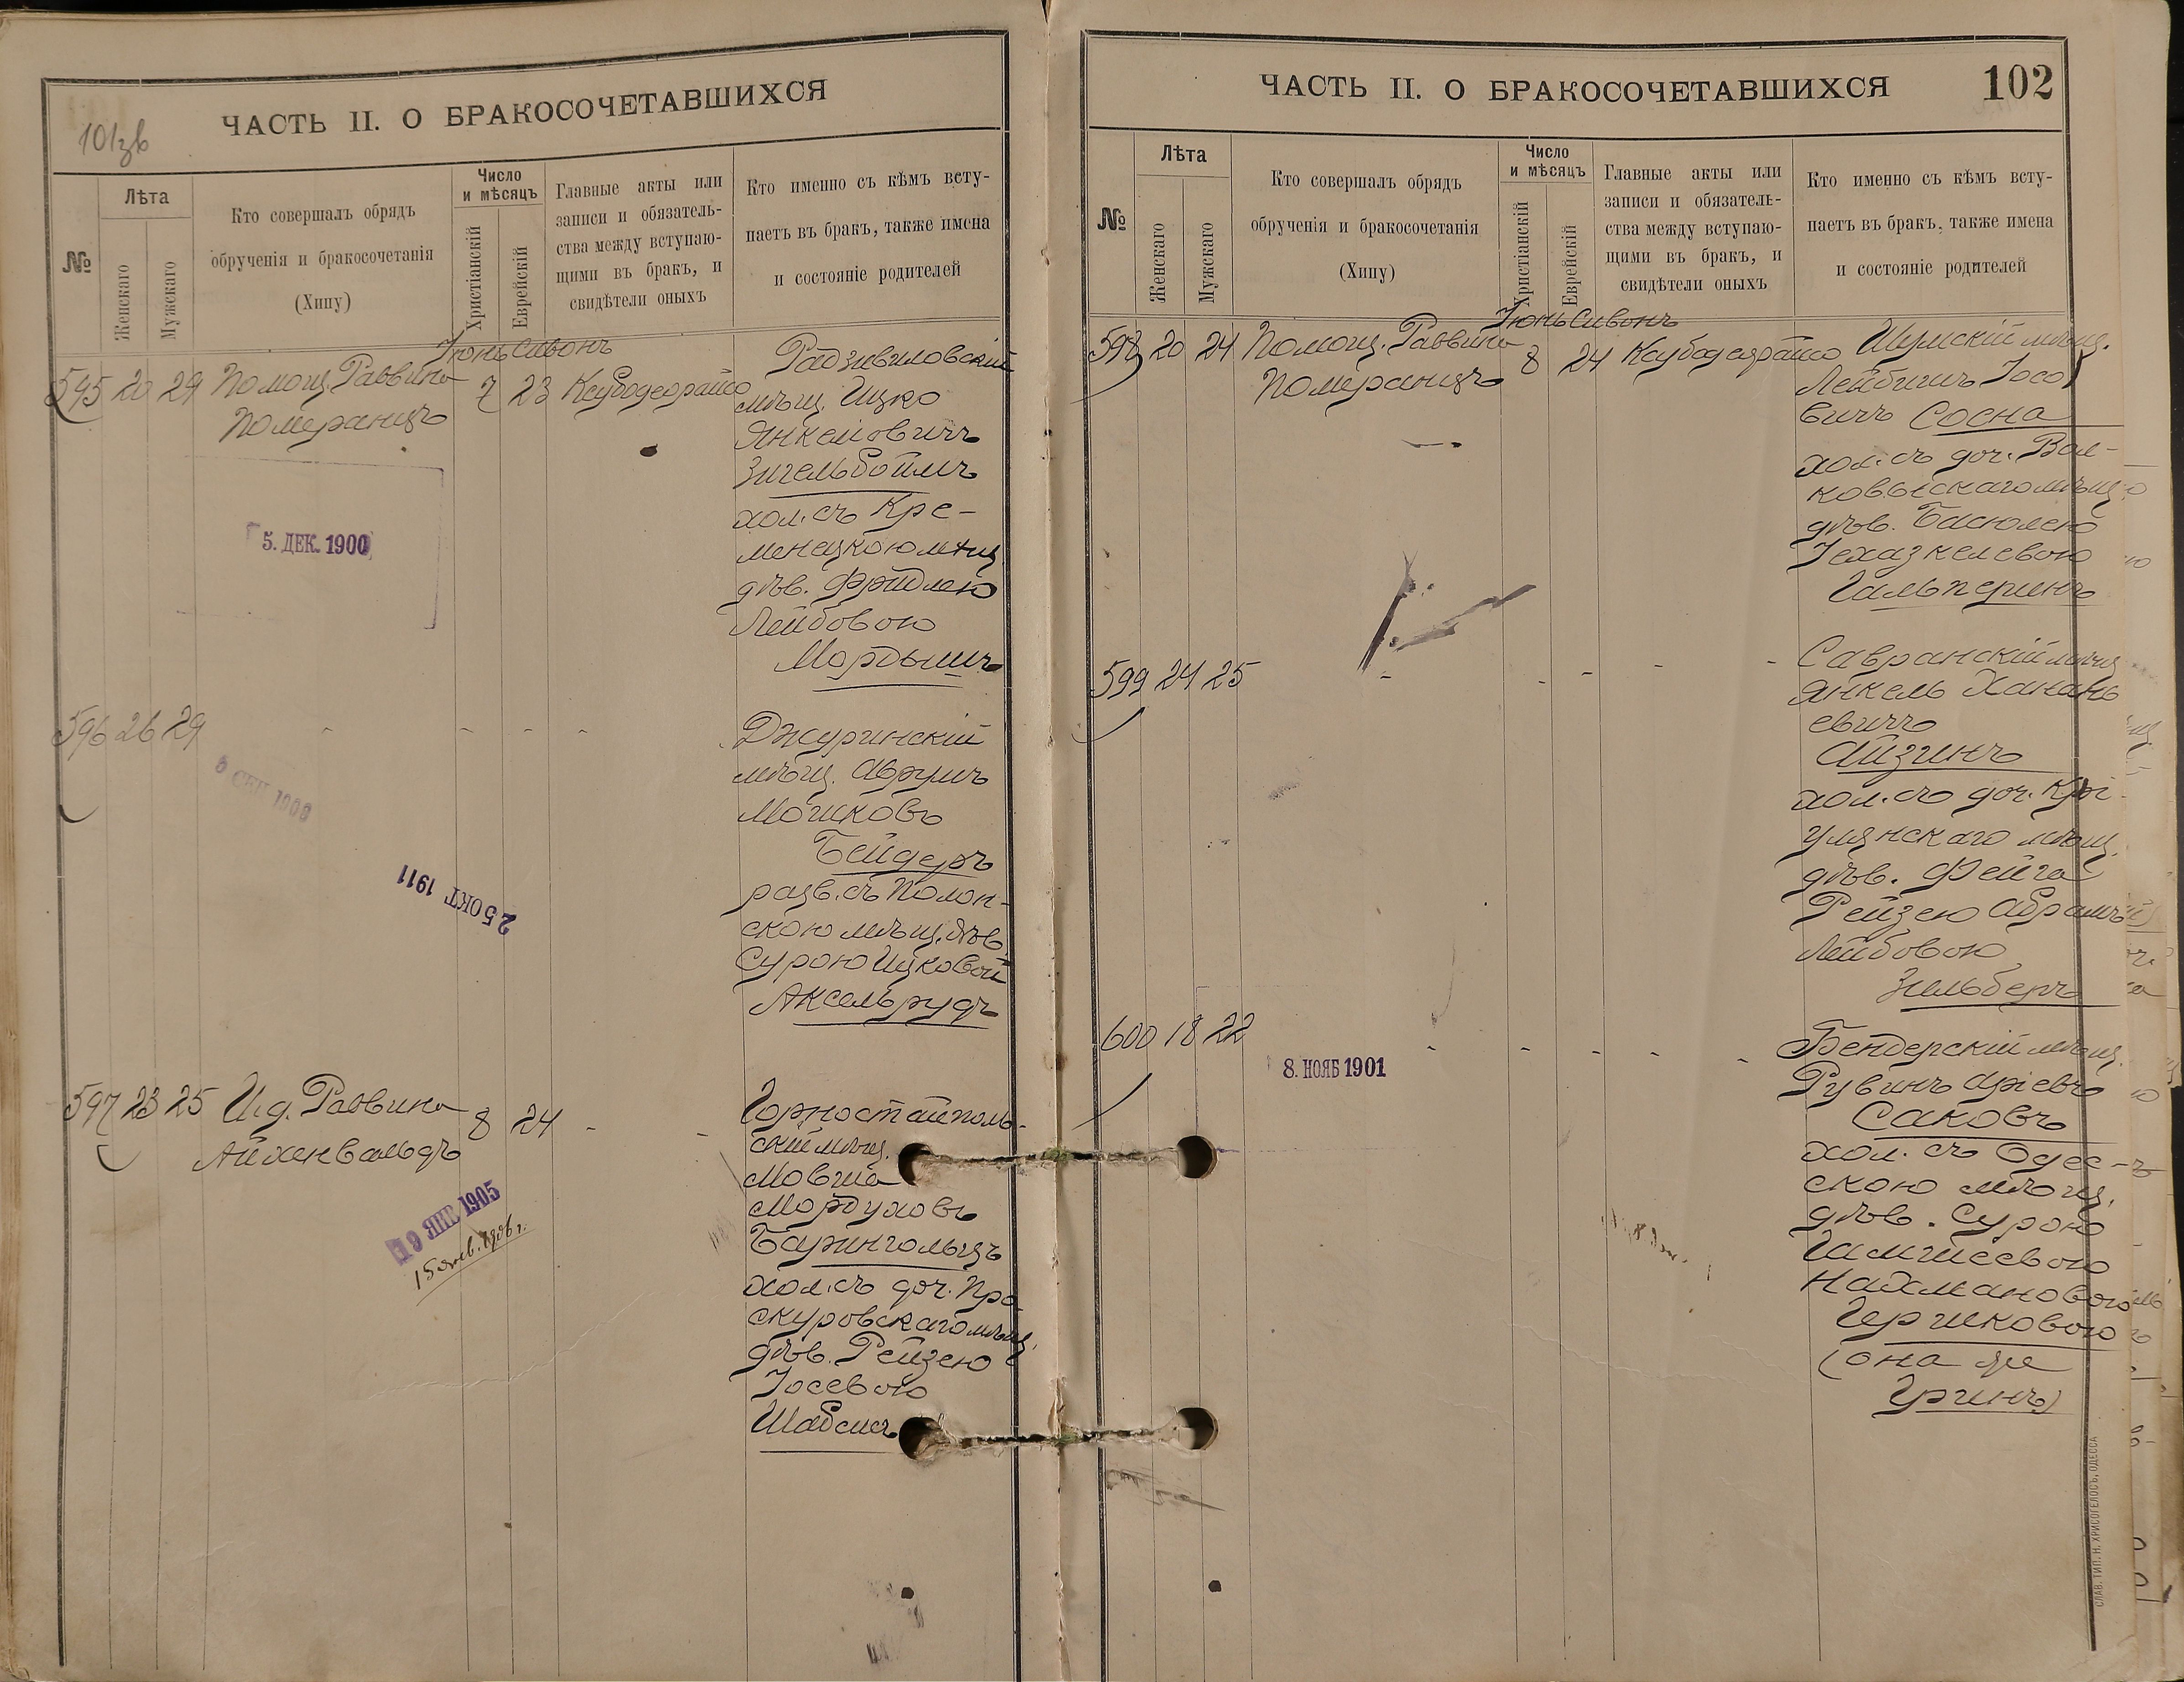 101зв
ЧАСТЬ II. О БРАКОСОЧЕТАВШИХСЯ
№
Лѣта
Женскаго
Мужскаго
Кто совершалъ обрядъ
обрученія и бракосочетанія
(Хипу)
Число
и мѣсяцъ
Христіанскій
Еврейскій
Главные акты или
записи и обязатель-
ства между вступаю-
щими въ бракъ, и
свидѣтели оныхъ
Кто именно съ кѣмъ всту-
паетъ въ бракъ, также имена
и состояніе родителей
Іюнь Сивонъ
595 20 29 Помощ. Раввина 7 23
Померанцъ
Радзивиловскій
мѣщ. Ицко
Янкелиовичъ
Зигельбоймъ
хол. съ Кре-
менецкою мѣщ.
дѣв. Фридлею
Лейбовою
Мордышъ
5. ДЕК. 1900
596 26 29 - - - -
Джуринскій
мѣщ. Аврумъ
Мошковъ
Бейдеръ
разв. съ Полон-
скою мѣщ. дѣв.
Сурою Ицковой
Аксельрудъ
25 ОКТ 1911
597 23 25 И.д. Раввина 8 24 - -
Айхенвальдъ
Горностайполь-
скій мѣщ.
Мовша
Мордуховъ
Барингольцъ
хол. съ доч. Про-
скуровскаго мѣщ.
дѣв. Рейзею
Іосевою
Шабсисъ
19 ЯНВ 1905
ЧАСТЬ II. О БРАКОСОЧЕТАВШИХСЯ 102
№
Лѣта
Женскаго
Мужскаго
Кто совершалъ обрядъ
обрученія и бракосочетанія
(Хипу)
Число
и мѣсяцъ
Христіанскій
Еврейскій
Главные акты или
записи и обязатель-
ства между вступаю-
щими въ бракъ, и
свидѣтели оныхъ
Кто именно съ кѣмъ всту-
паетъ въ бракъ, также имена
и состояніе родителей
Іюнь Сивонъ
598 20 24 Помощ. Раввина 8 24
Померанцъ
Шумскій мѣщ.
Лейбишъ Іосо
вичъ Сосна
хол. съ доч. Вол-
ковыскаго мѣщ.
дѣв. Басюлею
Іехазкелевою
Гальперинъ
599 24 25 - - - - -
Савранскій мѣщ.
Янкель Ханань
евичъ
Айзинъ
хол. съ доч. Крі
улянскаго мѣщ.
дѣв. Фейга
Рейзею Абрамъ
Лейбовою
Зильберъ
600 18 22 - - - - -
Бендерскій мѣщ.
Рувинъ Аріевъ
Саковъ
хол. съ Одес-
скою мѣщ.
дѣв. Сурою
Гамшеевою
Нахмановою
Гершковою
(она же
Гринъ)
8. НОЯБ 1901
СЛАВ. ТИП. Н. ХРИСОГЕЛОСЪ, ОДЕССА